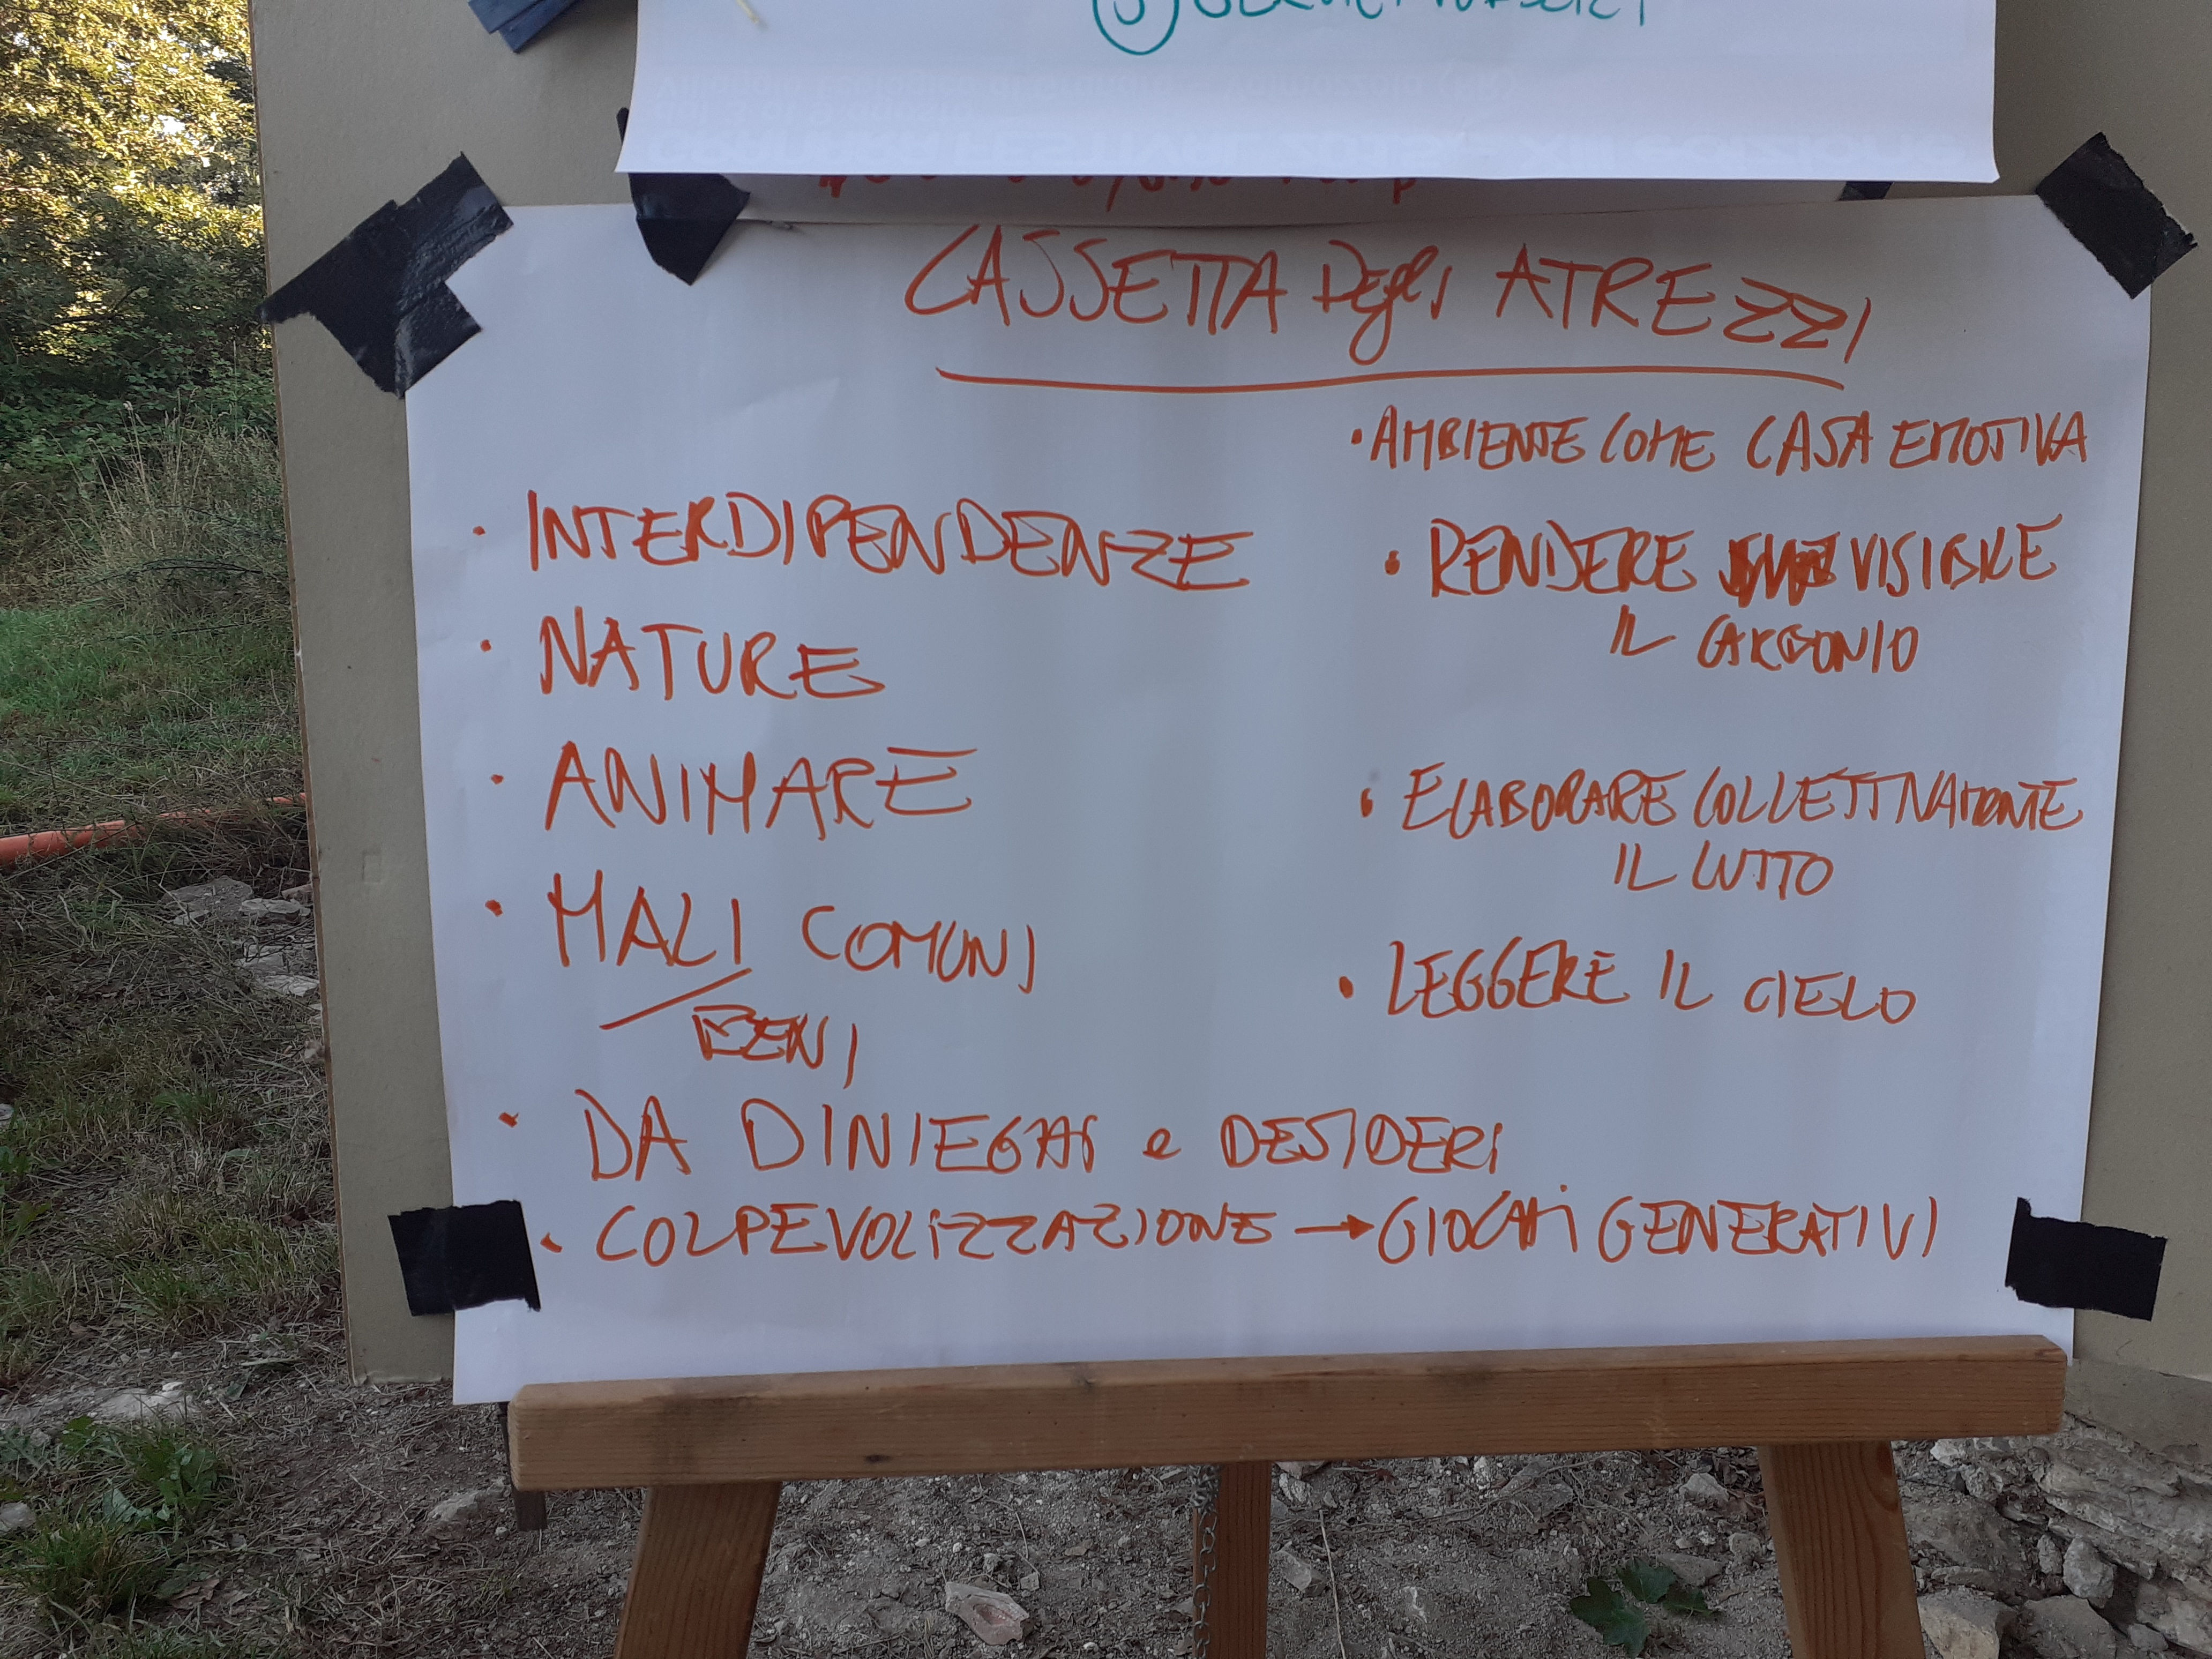 CASSETTA Degli ATREZZI
• INTERDIPENDENZE
• NATURE
• ANIMARE
• MALI COMUNI
BENI
• DA DINIEGHI e DESIDERI
• COLPEVOLIZZAZIONE → GIOCHI GENERATIVI
• AMBIENTE COME CASA EMOTIVA
• RENDERE VISIBILE
IL CARBONIO
• ELABORARE COLLETTIVAMENTE
IL LUTTO
• LEGGERE IL CIELO